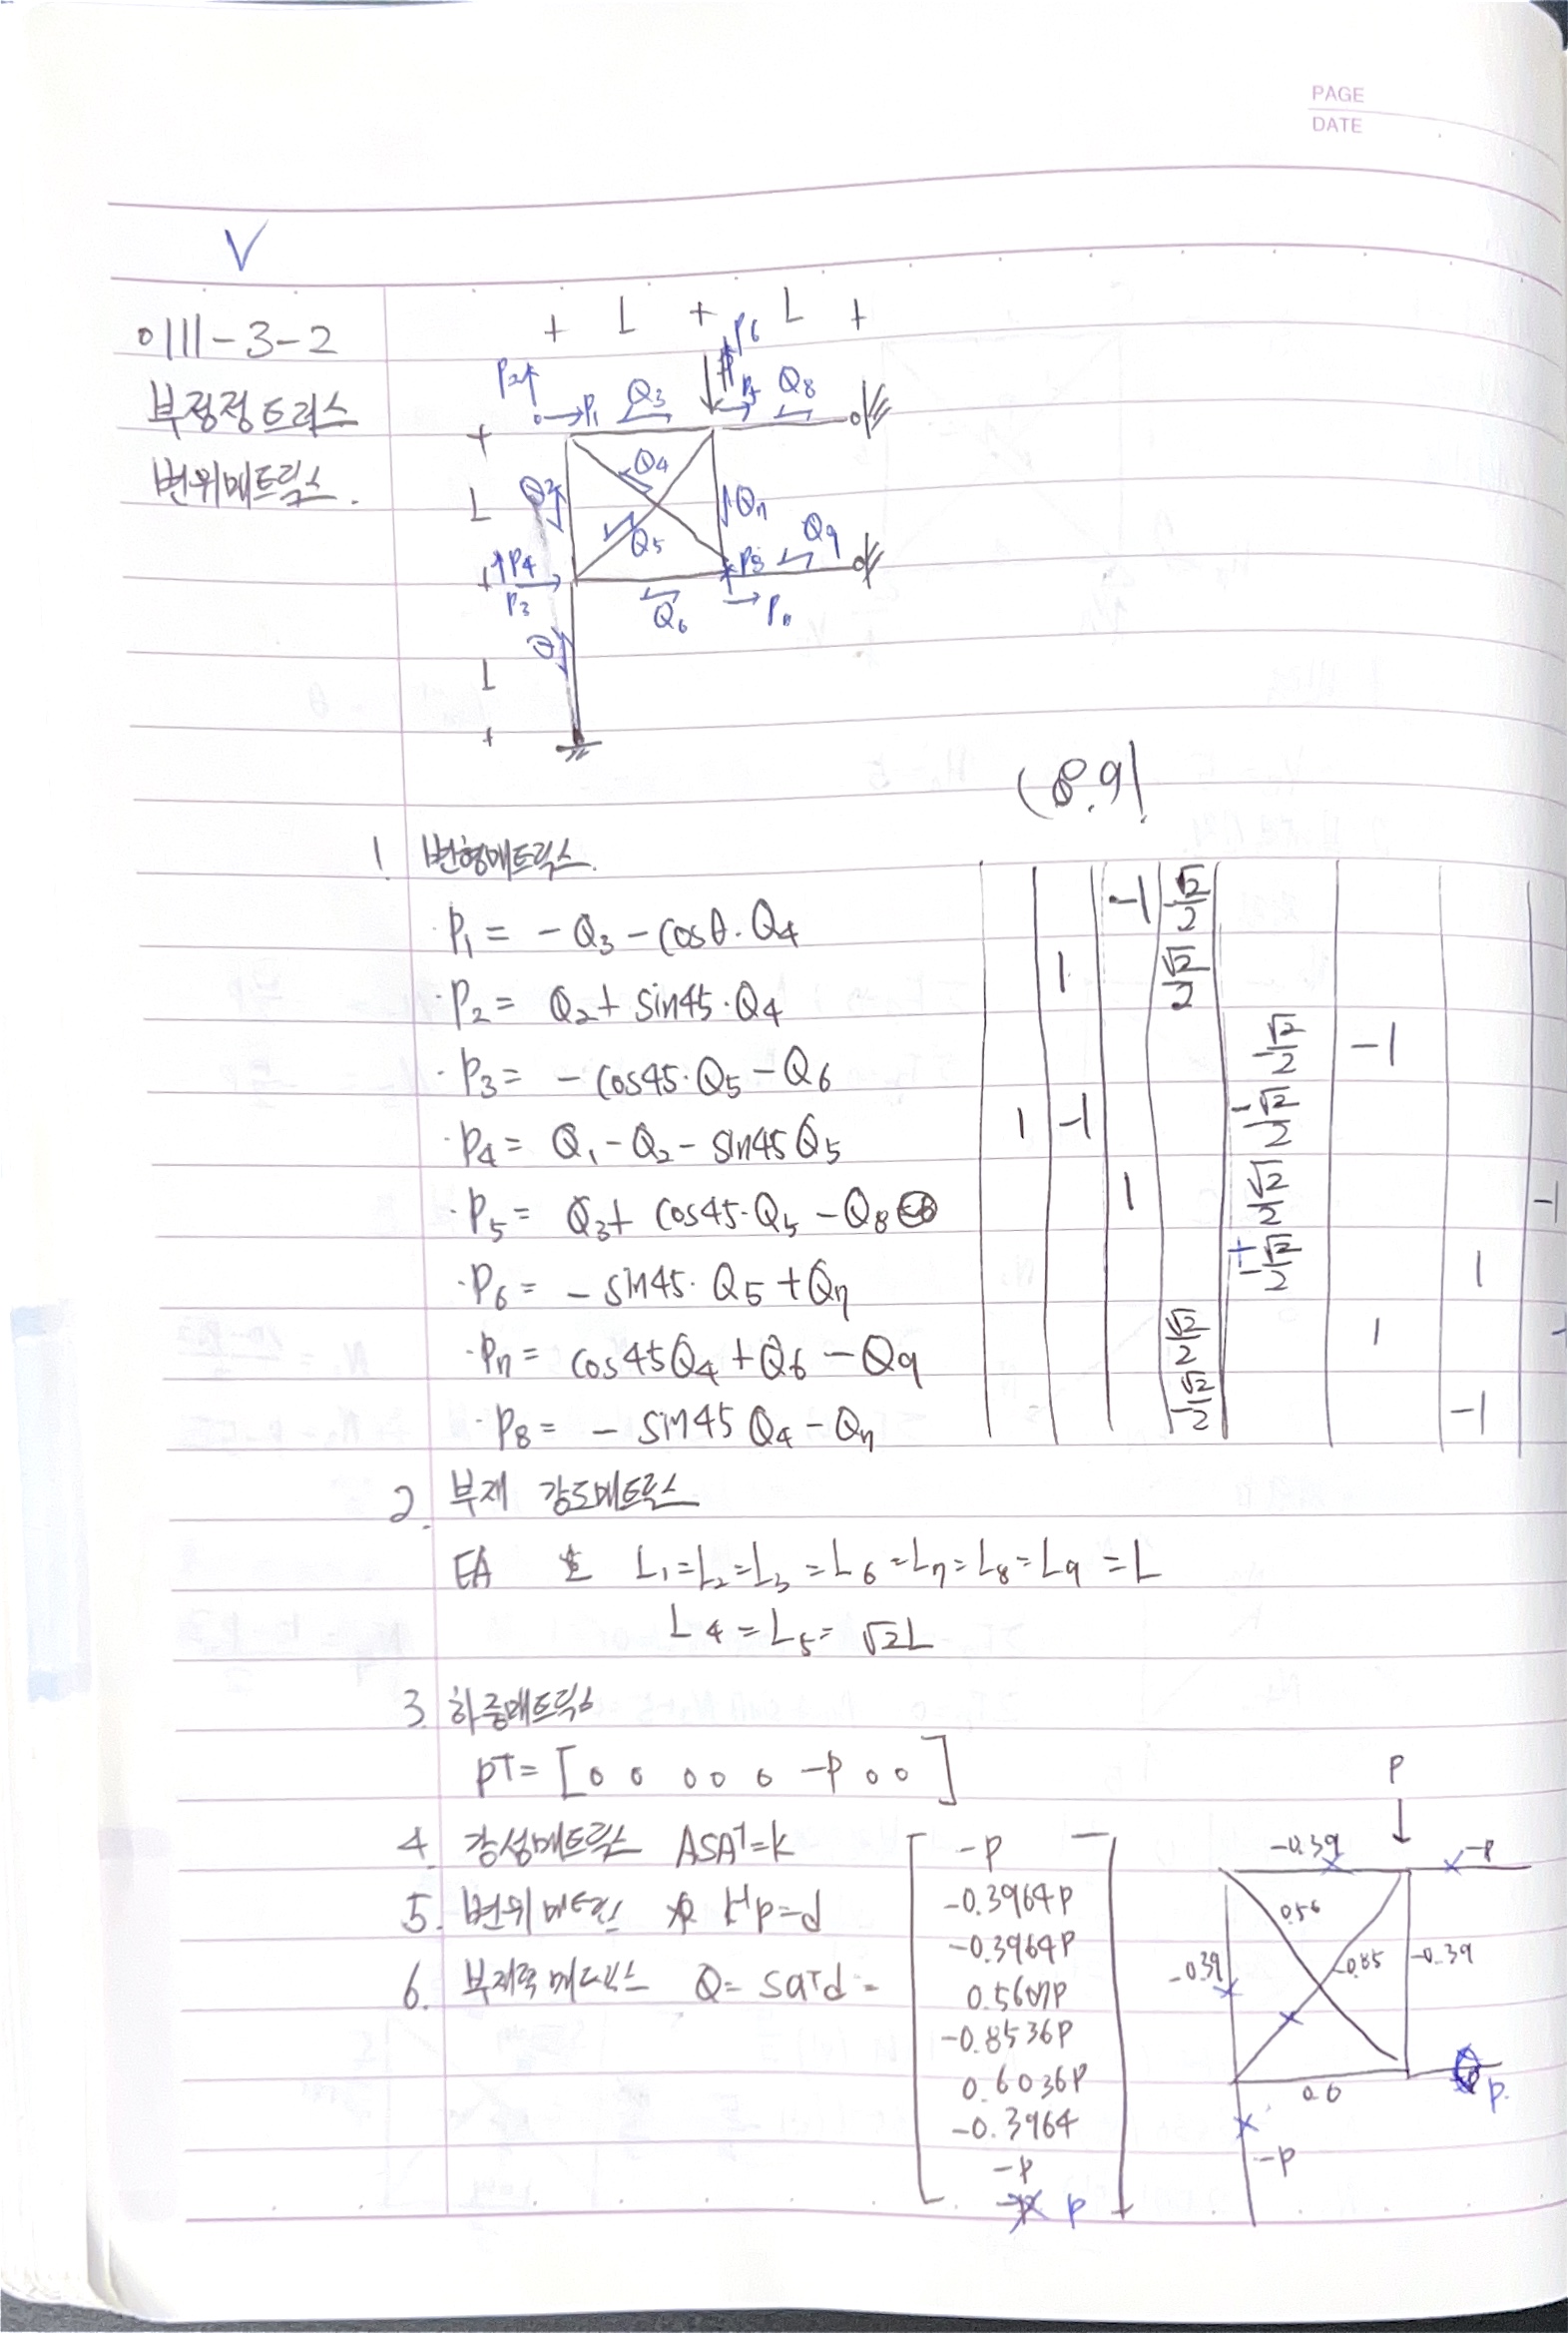 PAGE
DATE
V
0111-3-2
부정정트러스
변위매트릭스.
+ L + L +
P2 P1 Q3 P6 P5 Q8
+
L Q2 Q4 Q7
Q5 Q9
+ P4 P8
P3 Q6 P7
L Q1
+
(8.9)
1 변형매트릭스.
·P1 = - Q3 - cosθ. Q4 -1 -√2/2
·P2 = Q2 + sin45·Q4 1 √2/2
·P3 = - cos45·Q5 - Q6 -√2/2 -1
·P4 = Q1 - Q2 - sin45 Q5 1 -1 -√2/2
·P5 = Q3 + cos45·Q5 - Q8 1 √2/2 -1
·P6 = - sin45· Q5 + Q7 +-√2/2 1
·P7 = cos45Q4 + Q6 - Q9 √2/2 1 -
·P8 = - sin45 Q4 - Q7 -√2/2 -1
2. 부재 강도매트릭스
EA L1=L2=L3=L6=L7=L8=L9=L
L4=L5=√2L
3. 하중매트릭스
PT=[0 0 0 0 0 -P 0 0]
4. 강성매트릭스 ASAT=k
5. 변위매트릭스 k-1p=d
6. 부재력 매트릭스 Q= saTd =
-P
-0.3964P
-0.3964P
0.5607P
-0.8536P
0.6036P
-0.3964
-P
P
P
-0.39 -P
0.56
-0.39 -0.85 -0.39
0.6 P.
-P